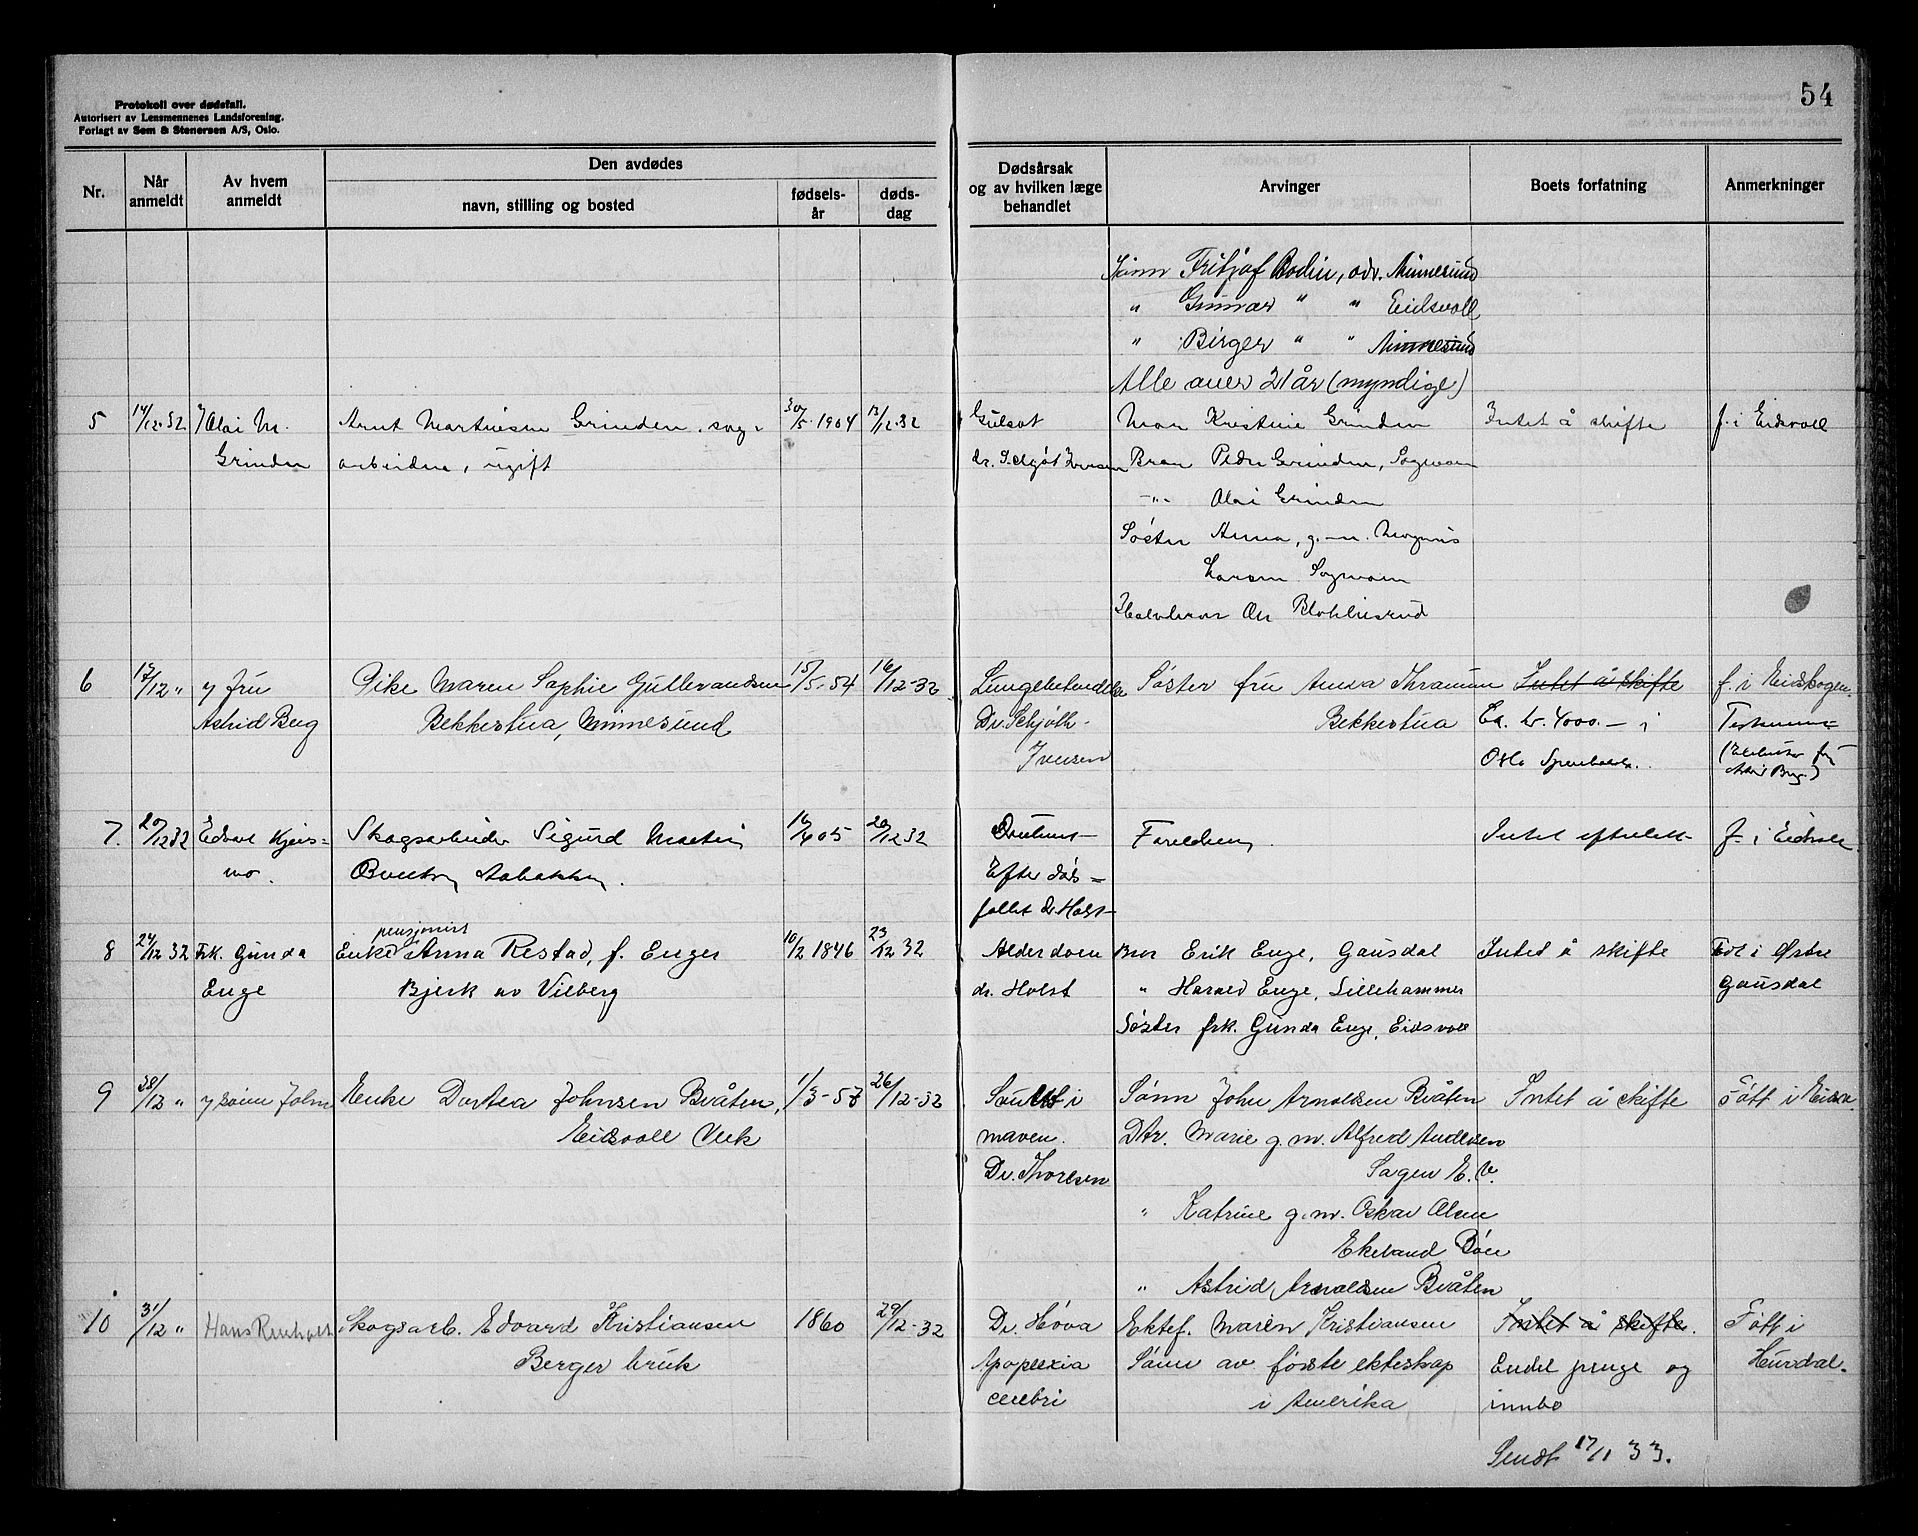 54
Protokoll over dødsfall.
Autorisert av Lensmennenes Landsforening.
Forlagt av Sem & Stenersen A/S, Oslo.
Nr.
Når anmeldt
Av hvem anmeldt
Den avdødes
navn, stilling og bosted
fødsels-år
døds-dag
Dødsårsak og av hvilken læge behandlet
Arvinger
Boets forfatning
Anmerkninger
Sønn Fritjof Bodin, adr. Minnesund
" Gunnar " " Eidsvoll
" Birger " " Minnesund
Alle over 21 år (myndige)
5 14/12.32
Grinden
Arnt Martinsen Grinden, sag-
arbeider, ugift
30/5.1904 13/12.32
Gulsot
dr. Schjøt Iversen
Mor Kristine Grinden
Bror Peder Grinden,
-"- Olai Grinden
Søster Anna, g.m. Magnus
Larsen
Halvbror
Intet å skifte
f. i Eidsvoll
6 17/12 "
v/ fru
Astrid Berg
Pike Maren Sophie Gullevandsen
Bekkestua, Minnesund
15/5-54 16/12-32
Lungebetendelse
Dr. Schjøth-
Iversen
Søster fru Anna
Bekkestua
Intet å skifte
Ca. kr. 4000.- i
Oslo
f. i Eidskogen.
7. 20/12 32
Skogsarbeider Sigurd Martin
20/12 32
Efter døds=
fallet dr Holst
Foreldrene.
f. i Eidsvoll.
8 24/12 32
Frk. Gunda
Enge
pensjonist
Enke Anna Restad, f. Enger
Bjerk av Vilberg
10/2 1846 23/12 32
Alderdom
dr. Holst
Bror Erik Enge, Gausdal
" Harald Enge, Lillehammer
Søster frk. Gunda Enge, Eidsvoll
Intet å skifte
Født i Østre
Gausdal
9 28/12 "
v/ sønn John
Enke Dortea Johnsen Bråten,
Eidsvoll Verk
1/3-57 26/12-32
i
maven.
Dr. Thoresen
Sønn John Arnoldsen Bråten
Dtr. Marie g.m. Alfred Andersen
Sagen E.V.
" Katrine g.m. Oskar Olsen
Ekeland
" Astrid Arnoldsen Bråten
Intet å skifte
Født i Eidsv.
10 31/12 "
Hans
Skogsarb. Edvard Kristiansen
Berger bruk
1860 29/12-32
Dr. Hova
Apoplexia
cerebri
Ektef. Maren Kristiansen
Sønn av første ekteskap
i Amerika
Intet å skifte.
Endel penge og
innbo
Født i
Hurdal.
Sendt 17/11 33.